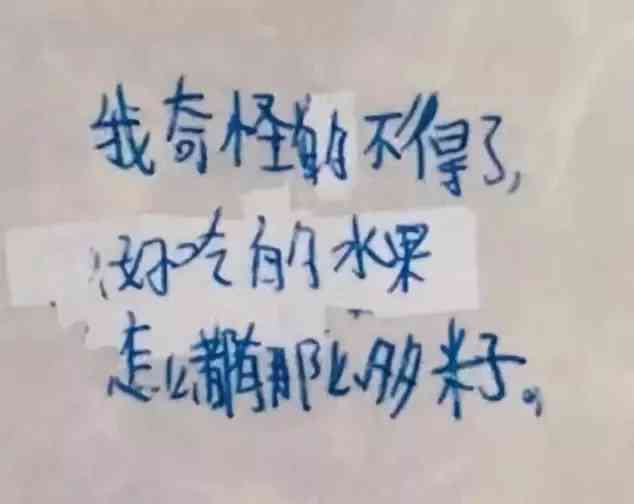 我奇怪的不得了,
好吃的水果
怎么都有那么多米子。